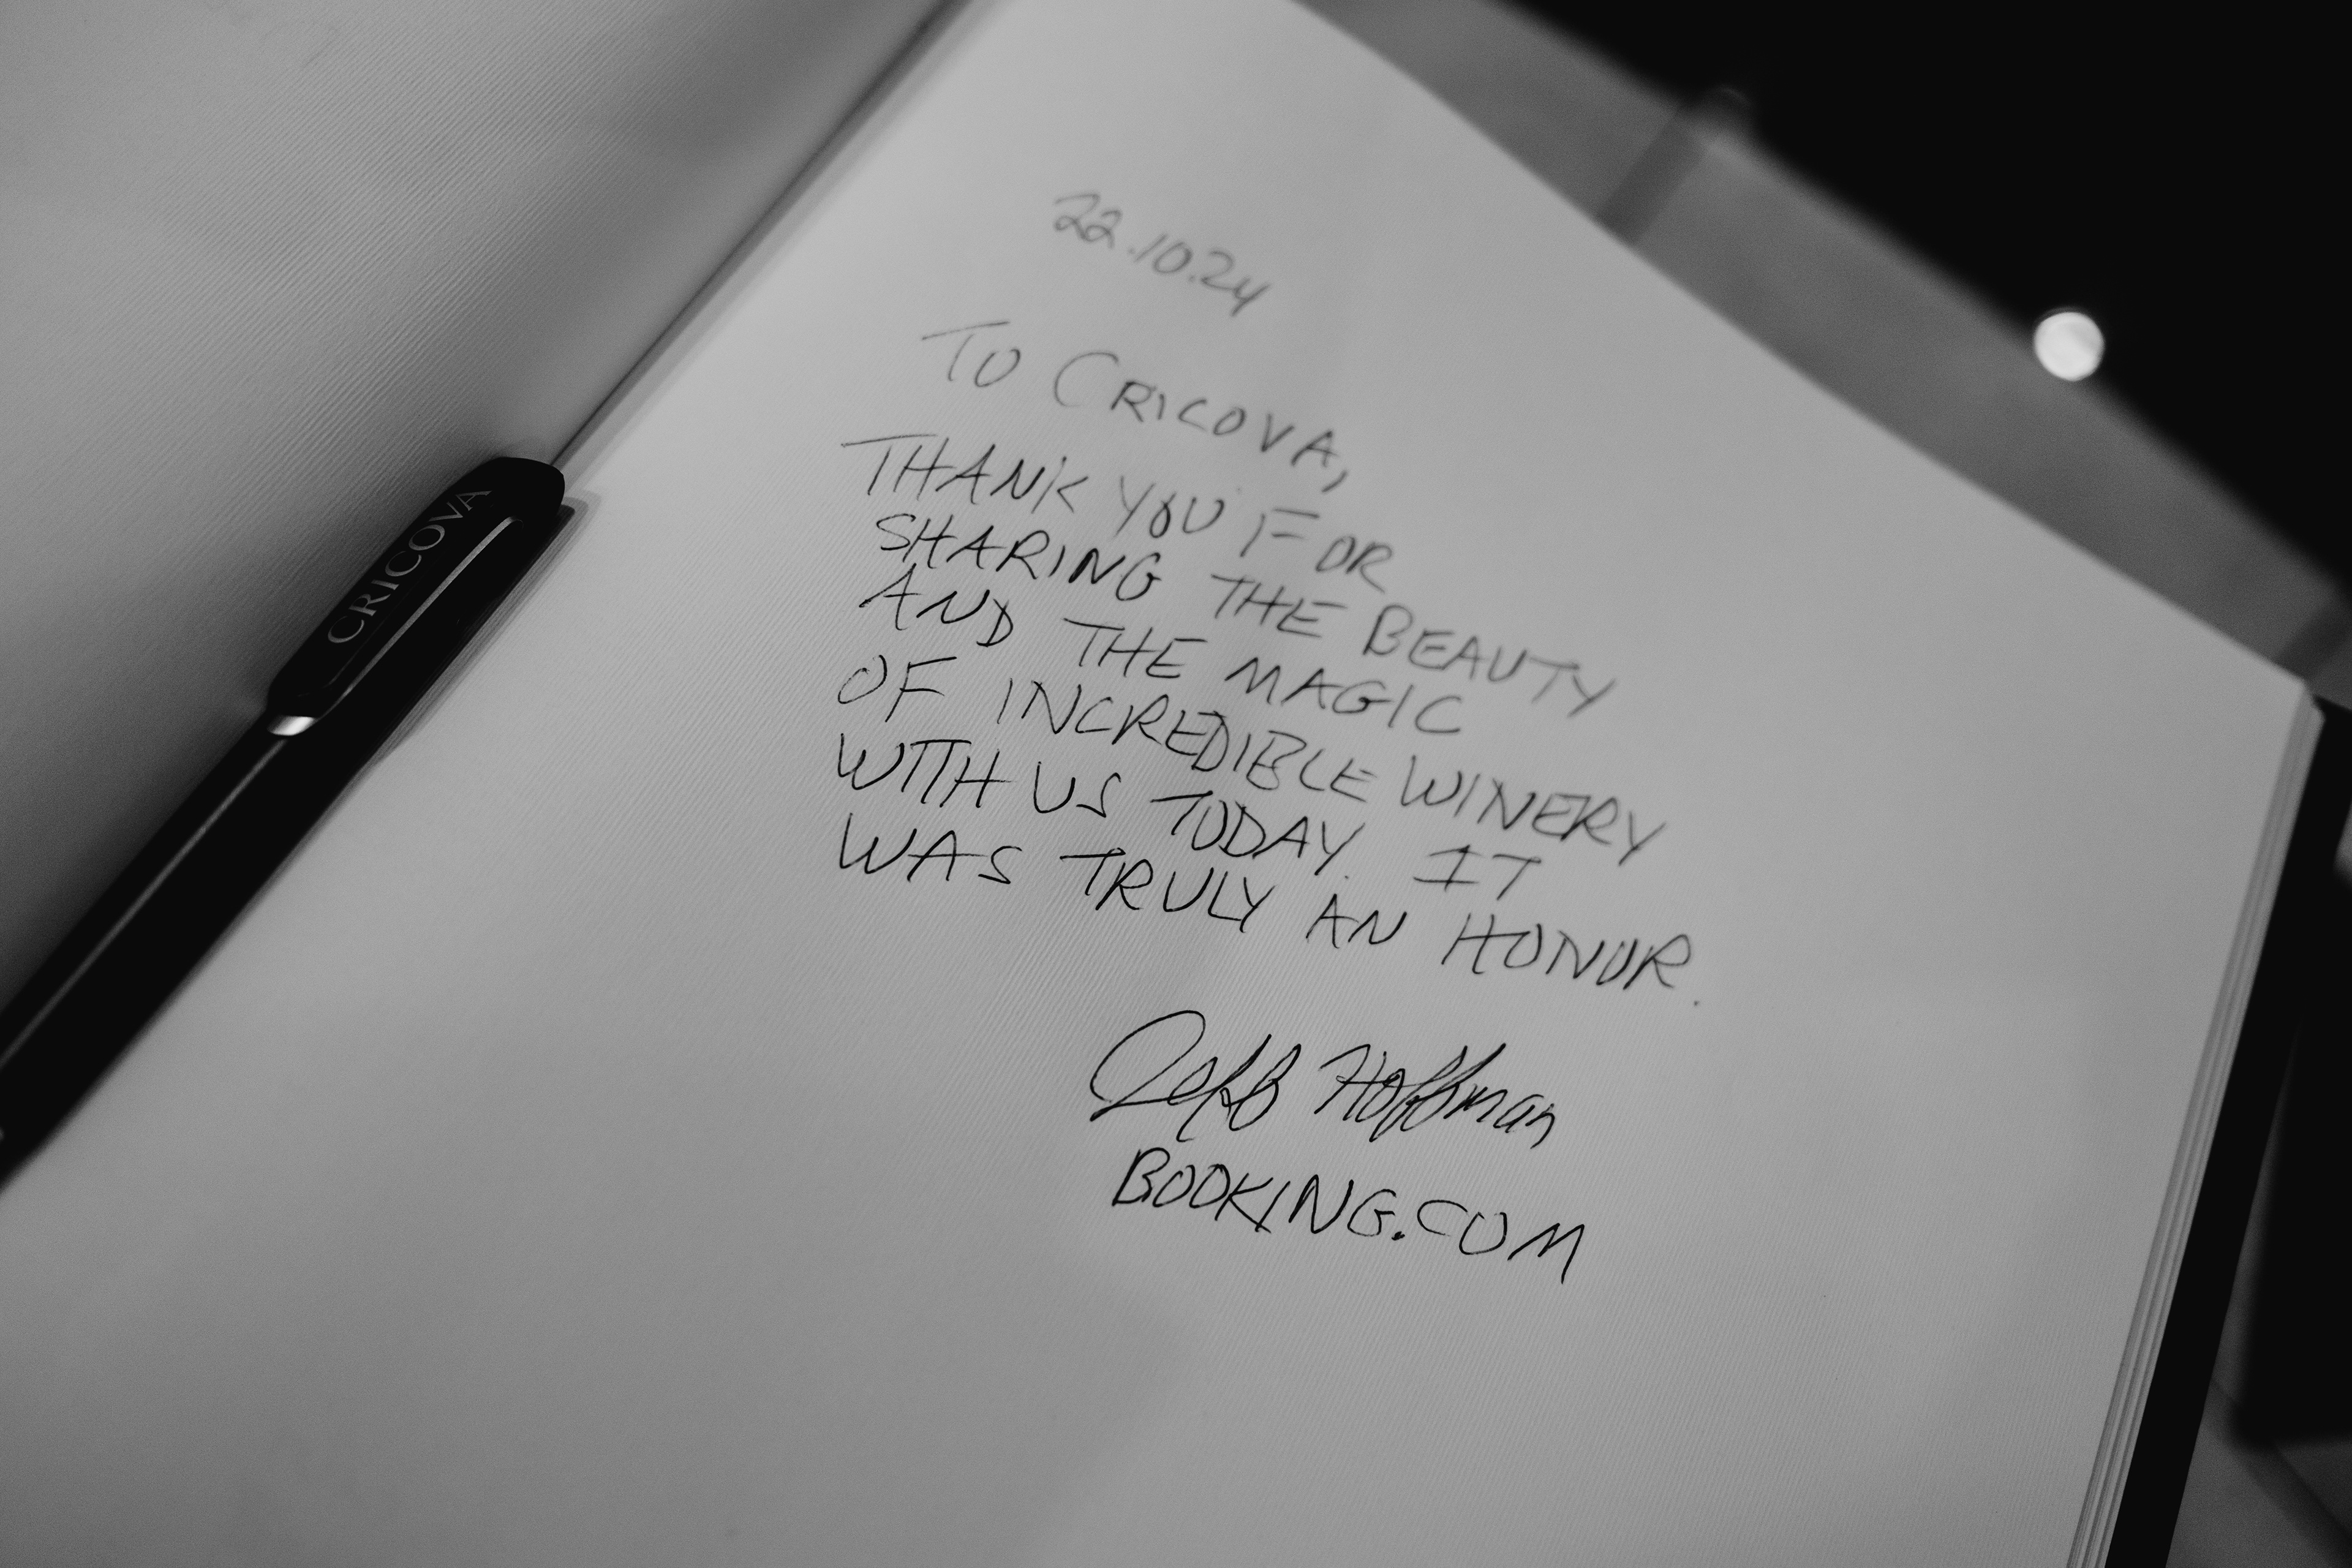 CRICOVA
22.10.24
TO CRICOVA,
THANK YOU FOR
SHARING THE BEAUTY
AND THE MAGIC
OF INCREDIBLE WINERY
WITH US TODAY. IT
WAS TRULY AN HONOR.
Jeff Hoffman
BOOKING.COM